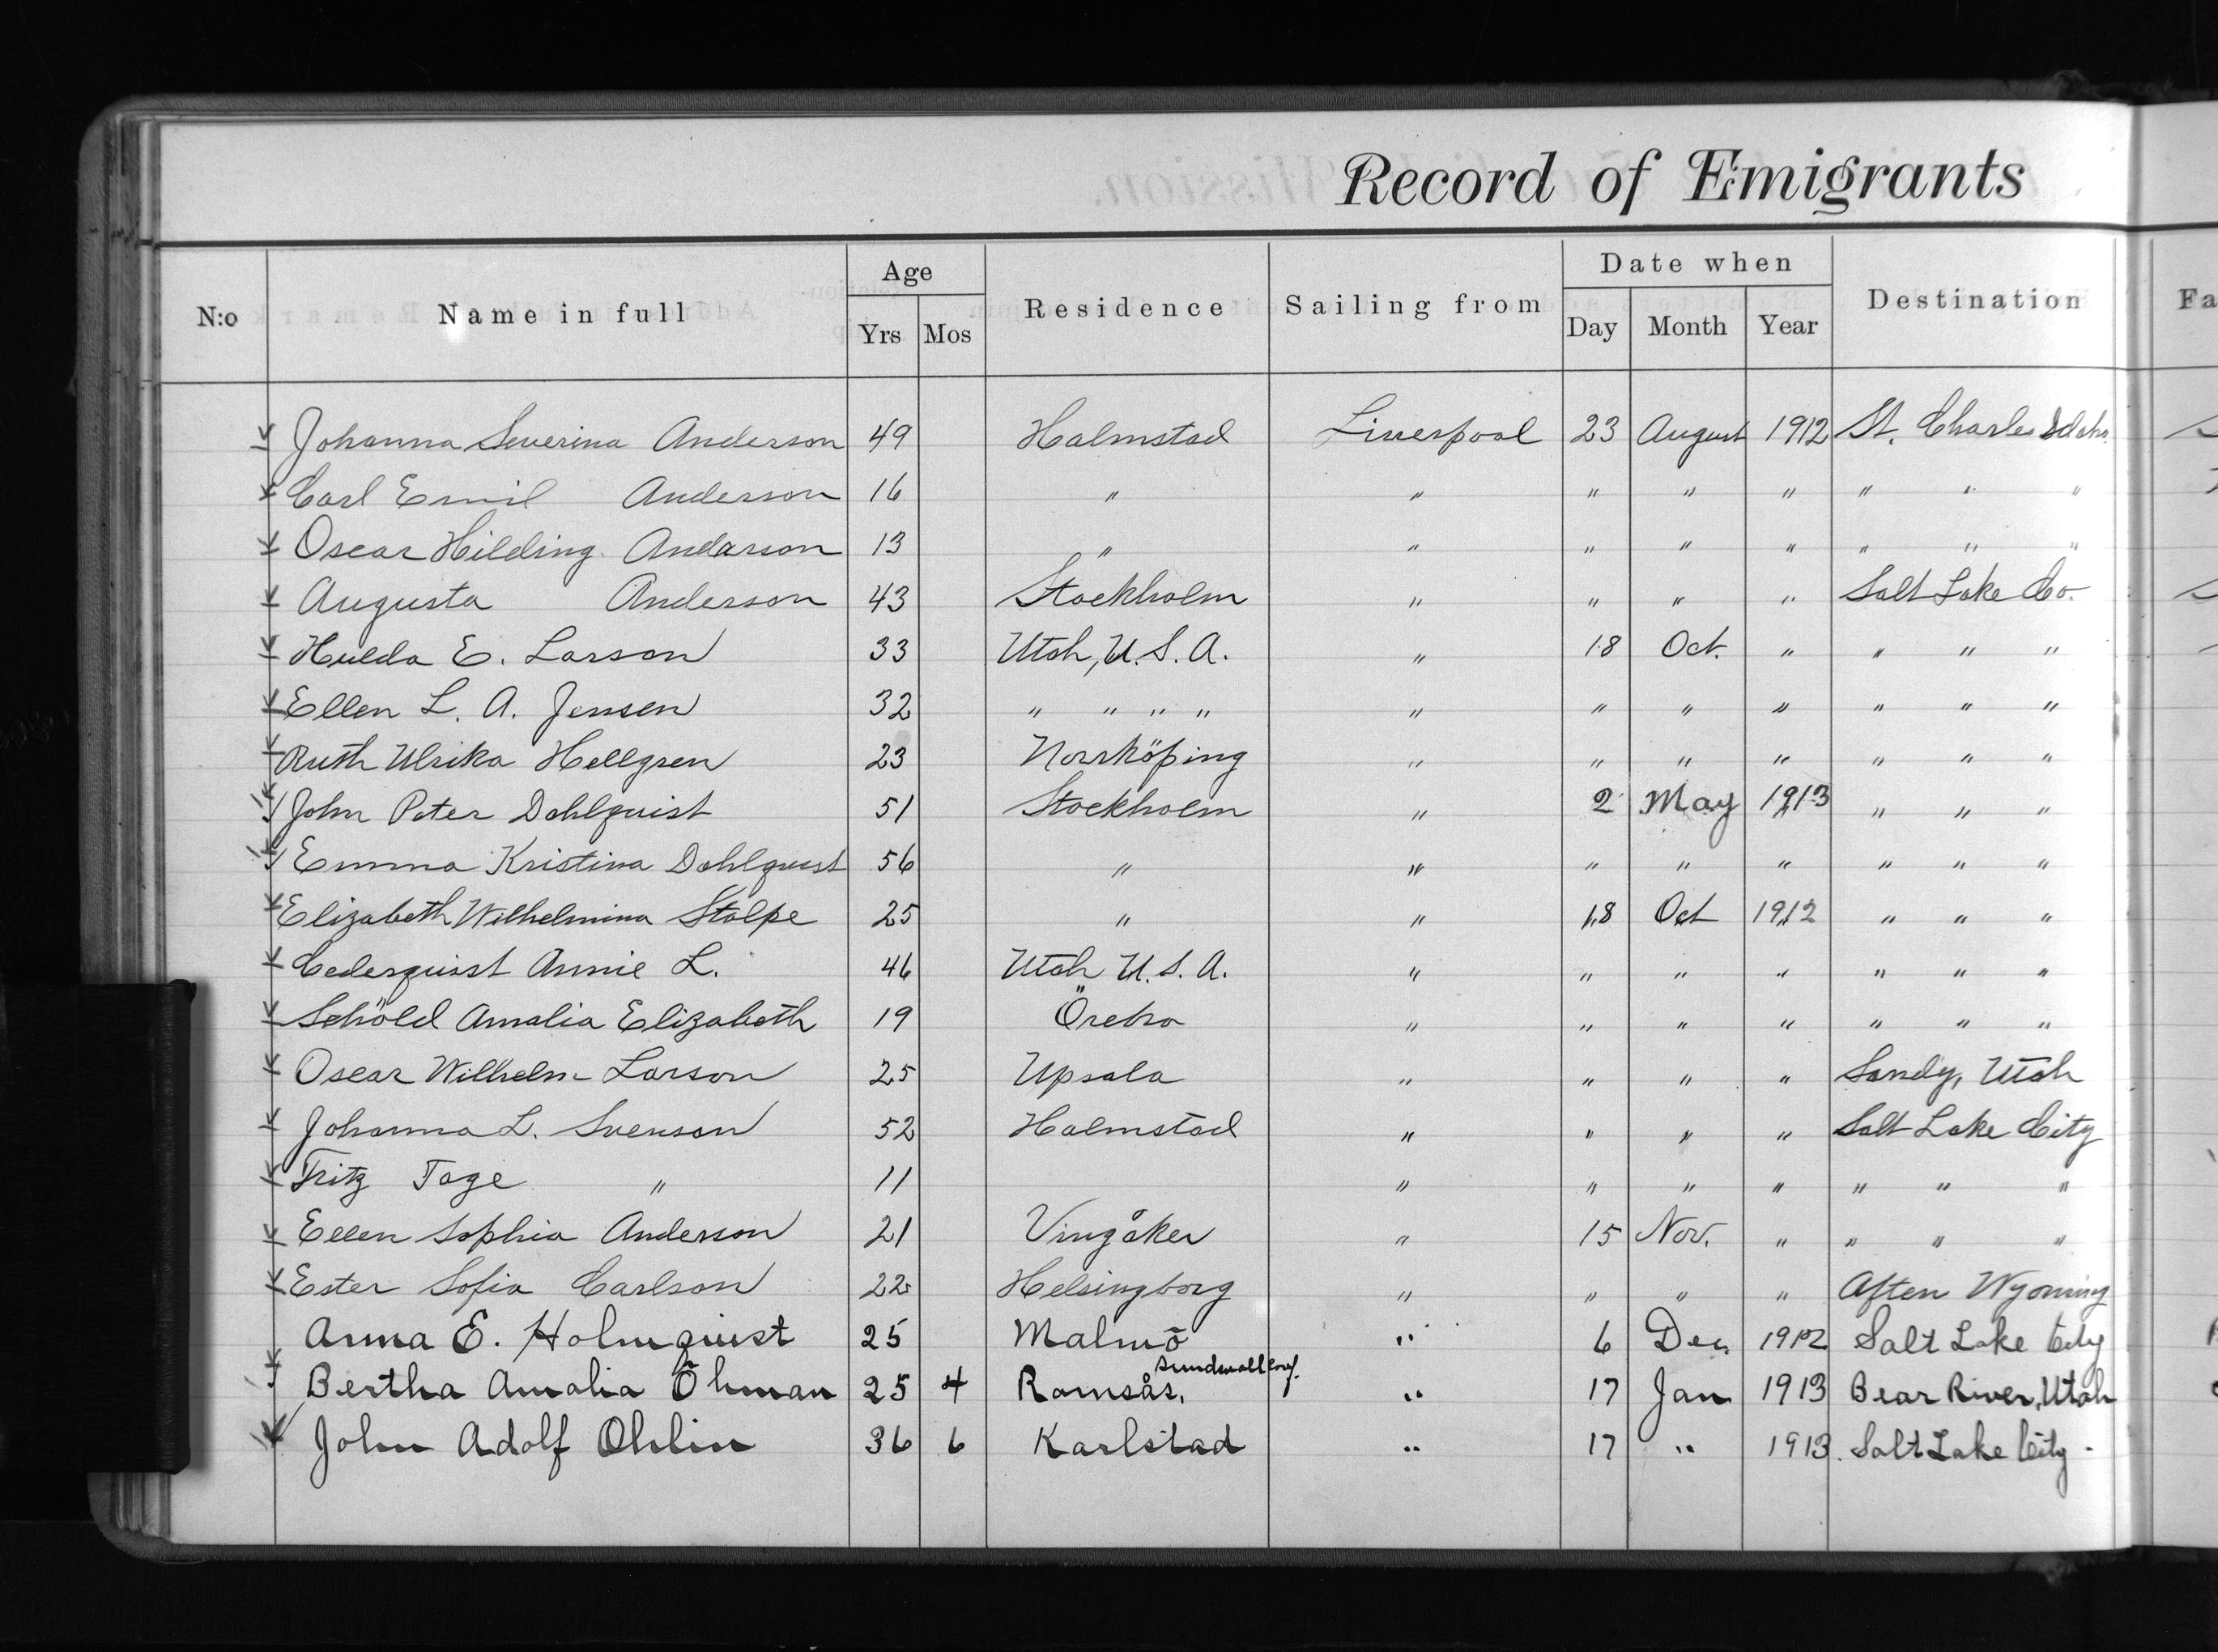 Record of Emigrants
N:o Name in full Age Yrs Mos Residence Sailing from Date when Day Month Year Destination Fa
Johanna Severina Anderson 49 Halmstad Liverpool 23 August 1912 St. Charles Idaho.
Carl Emil Anderson 16 " " " " " " " "
Oscar Hilding Anderson 13 " " " " " " " "
Augusta Anderson 43 Stockholm " " " " Salt Lake Co.
Hulda E. Larson 33 Utah, U.S.A. " 18 Oct. " " " "
Ellen L. A. Jensen 32 " " " " " " " " " " "
Ruth Ulrika Hellgren 23 Norrköping " " " " " " "
John Peter Dahlquist 51 Stockholm " 2 May 1913 " " "
Emma Kristina Dahlquist 56 " " " " " " " "
Elizabeth Wilhelmina Stolpe 25 " " 18 Oct 1912 " " "
Cederquist Annie L. 46 Utah U.S.A. " " " " " " "
Schöld Amalia Elizabeth 19 Örebro " " " " " " "
Oscar Wilhelm Larson 25 Upsala " " " " Sandy, Utah
Johanna L. Svenson 52 Halmstad " " " " Salt Lake City
Fritz Tage " 11 " " " " " " "
Ellen Sophia Anderson 21 Vingåker " 15 Nov. " " " "
Ester Sofia Carlson 22 Helsingborg " " " " Aften Wyoming
Anna E. Holmquist 25 Malmö " 6 Dec. 1912 Salt Lake City
Bertha Amalia Öhman 25 4 Ramsås, Sundsvall conf. " 17 Jan 1913 Bear River, Utah
John Adolf Ohlin 36 6 Karlstad " 17 " 1913. Salt Lake City -